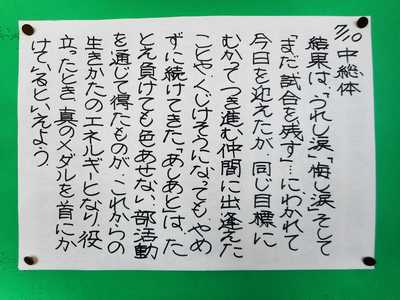 7/10 中総体
結果は、「うれし涙」「悔し涙」そして
「まだ試合を残す」…にわかれて
今日を迎えたが、同じ目標に
むかってつき進む仲間に出逢えた
ことや、くじけそうになっても、やめ
ずに続けてきた「あしあと」は、た
とえ負けても色あせない。部活動
を通じて得たものが、これからの
生きかたのエネルギーとなり役
立ったとき、真のメダルを首にか
けているといえよう。